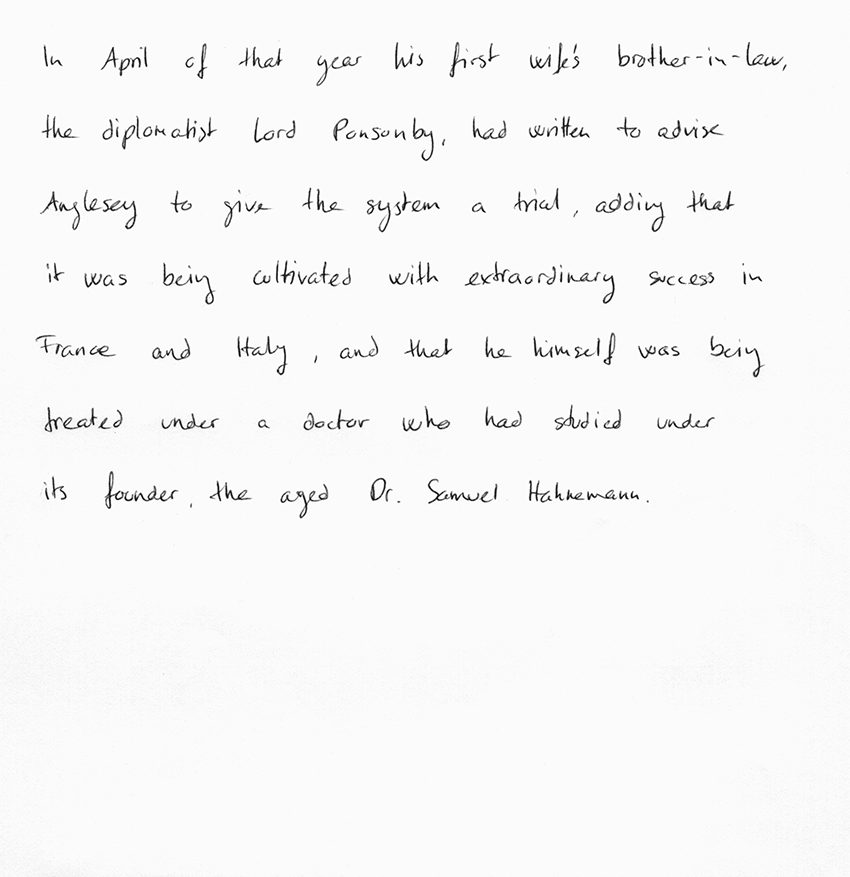 In April of that year his first wife's brother-in-law,
the diplomatist Lord Ponsonby, had written to advise
Anglesey to give the system a trial, adding that
it was being cultivated with extraordinary success in
France and Italy, and that he himself was being
treated under a doctor who had studied under
its founder, the aged Dr. Samuel Hahnemann.